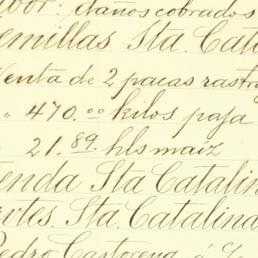 por: daños cobrados
Semillas Sta. Catal
Venta de 2 pacas rastro
" 470.00 kilos paja
" 21.89. hls maiz
Tienda Sta Catalin
Sta. Catalina
Pedro Castorena, á